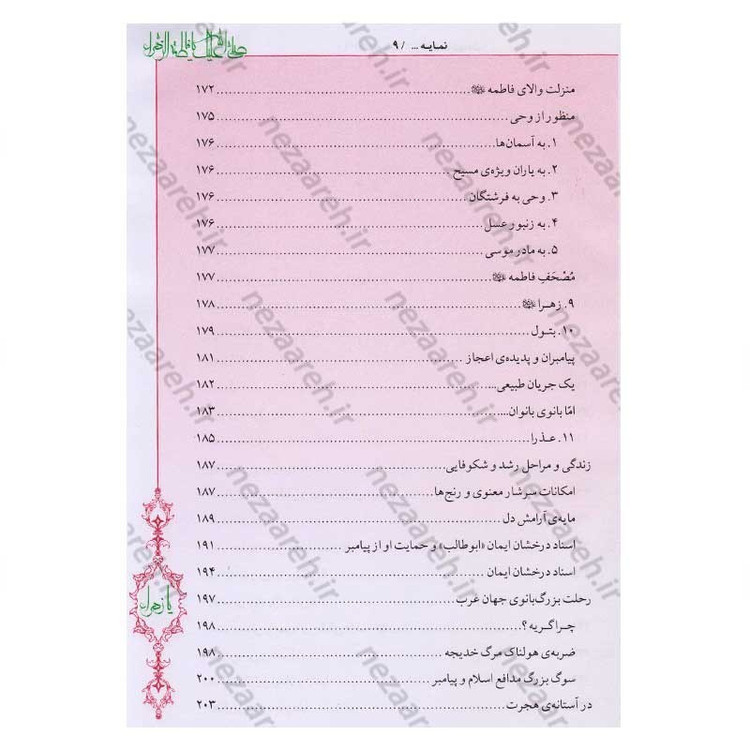 صلی الله علیک یا فاطمة الزهراء
نمایه ... / ۹
منزلت والای فاطمه ................ ۱۷۲
منظور از وحی ................ ۱۷۵
۱. به آسمان‌ها ................ ۱۷۶
۲. به یاران ویژه‌ی مسیح ................ ۱۷۶
۳. وحی به فرشتگان ................ ۱۷۶
۴. به زنبور عسل ................ ۱۷۶
۵. به مادر موسی ................ ۱۷۷
مُصْحَفِ فاطمه ................ ۱۷۷
۹. زهرا ................ ۱۷۸
۱۰. بتول ................ ۱۷۹
پیامبران و پدیده‌ی اعجاز ................ ۱۸۱
یک جریان طبیعی ................ ۱۸۲
امّا بانوی بانوان ................ ۱۸۳
۱۱. عذرا ................ ۱۸۵
زندگی و مراحل رشد و شکوفایی ................ ۱۸۷
امکانات سرشار معنوی و رنج‌ها ................ ۱۸۷
مایه‌ی آرامش دل ................ ۱۸۹
اسناد درخشان ایمان «ابوطالب» و حمایت او از پیامبر ................ ۱۹۱
اسناد درخشان ایمان ................ ۱۹۴
رحلت بزرگ‌بانوی جهان عرب ................ ۱۹۷
چرا گریه؟ ................ ۱۹۸
ضربه‌ی هولناک مرگ خدیجه ................ ۱۹۸
سوگ بزرگ مدافع اسلام و پیامبر ................ ۲۰۰
در آستانه‌ی هجرت ................ ۲۰۳
یا زهراء
nezaareh.ir